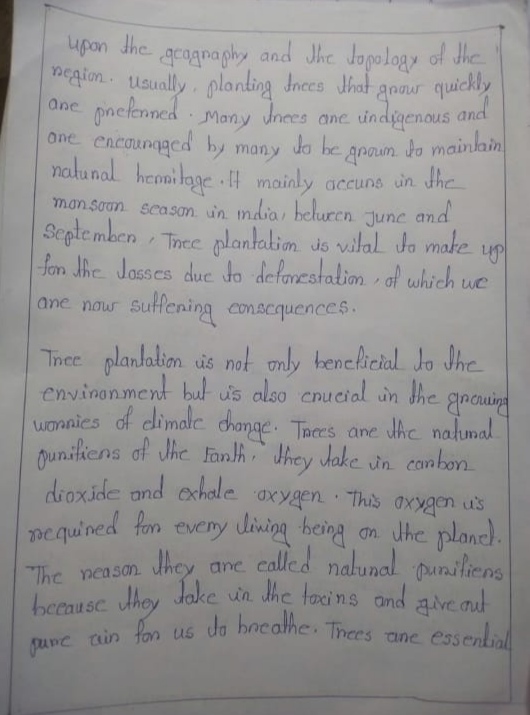 upon the geography and the topology of the
region. usually, planting trees that grow quickly
are preferred. Many trees are indigenous and
are encouraged by many to be grown to maintain
natural hermitage. It mainly occurs in the
monsoon season in india, between June and
September, Tree plantation is vital to make up
for the losses due to deforestation, of which we
are now suffering consequences.
Tree plantation is not only beneficial to the
environment but is also crucial in the growing
worries of climate change. Trees are the natural
purifiens of the Earth. they take in carbon
dioxide and exhale oxygen. This oxygen is
required for every living being on the planet.
The reason they are called natural purifiens
because they take in the toxins and give out
pure air for us to breathe. Trees are essential